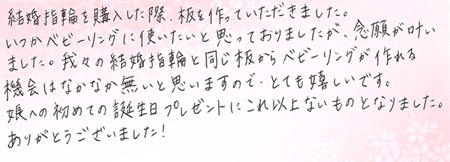 結婚指輪を購入した際、板を作っていただきました。
いつかベビーリングに使いたいと思っておりましたが、念願が叶い
ました。我々の結婚指輪と同じ板からベビーリングが作れる
機会はなかなか無いと思いますので、とても嬉しいです。
娘への初めての誕生日プレゼントにこれ以上ないものとなりました。
ありがとうございました!